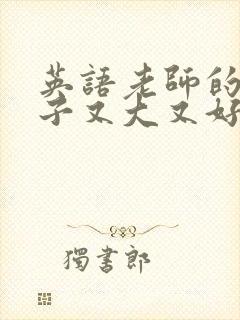 英語老師的
子又大又好
獨書郎